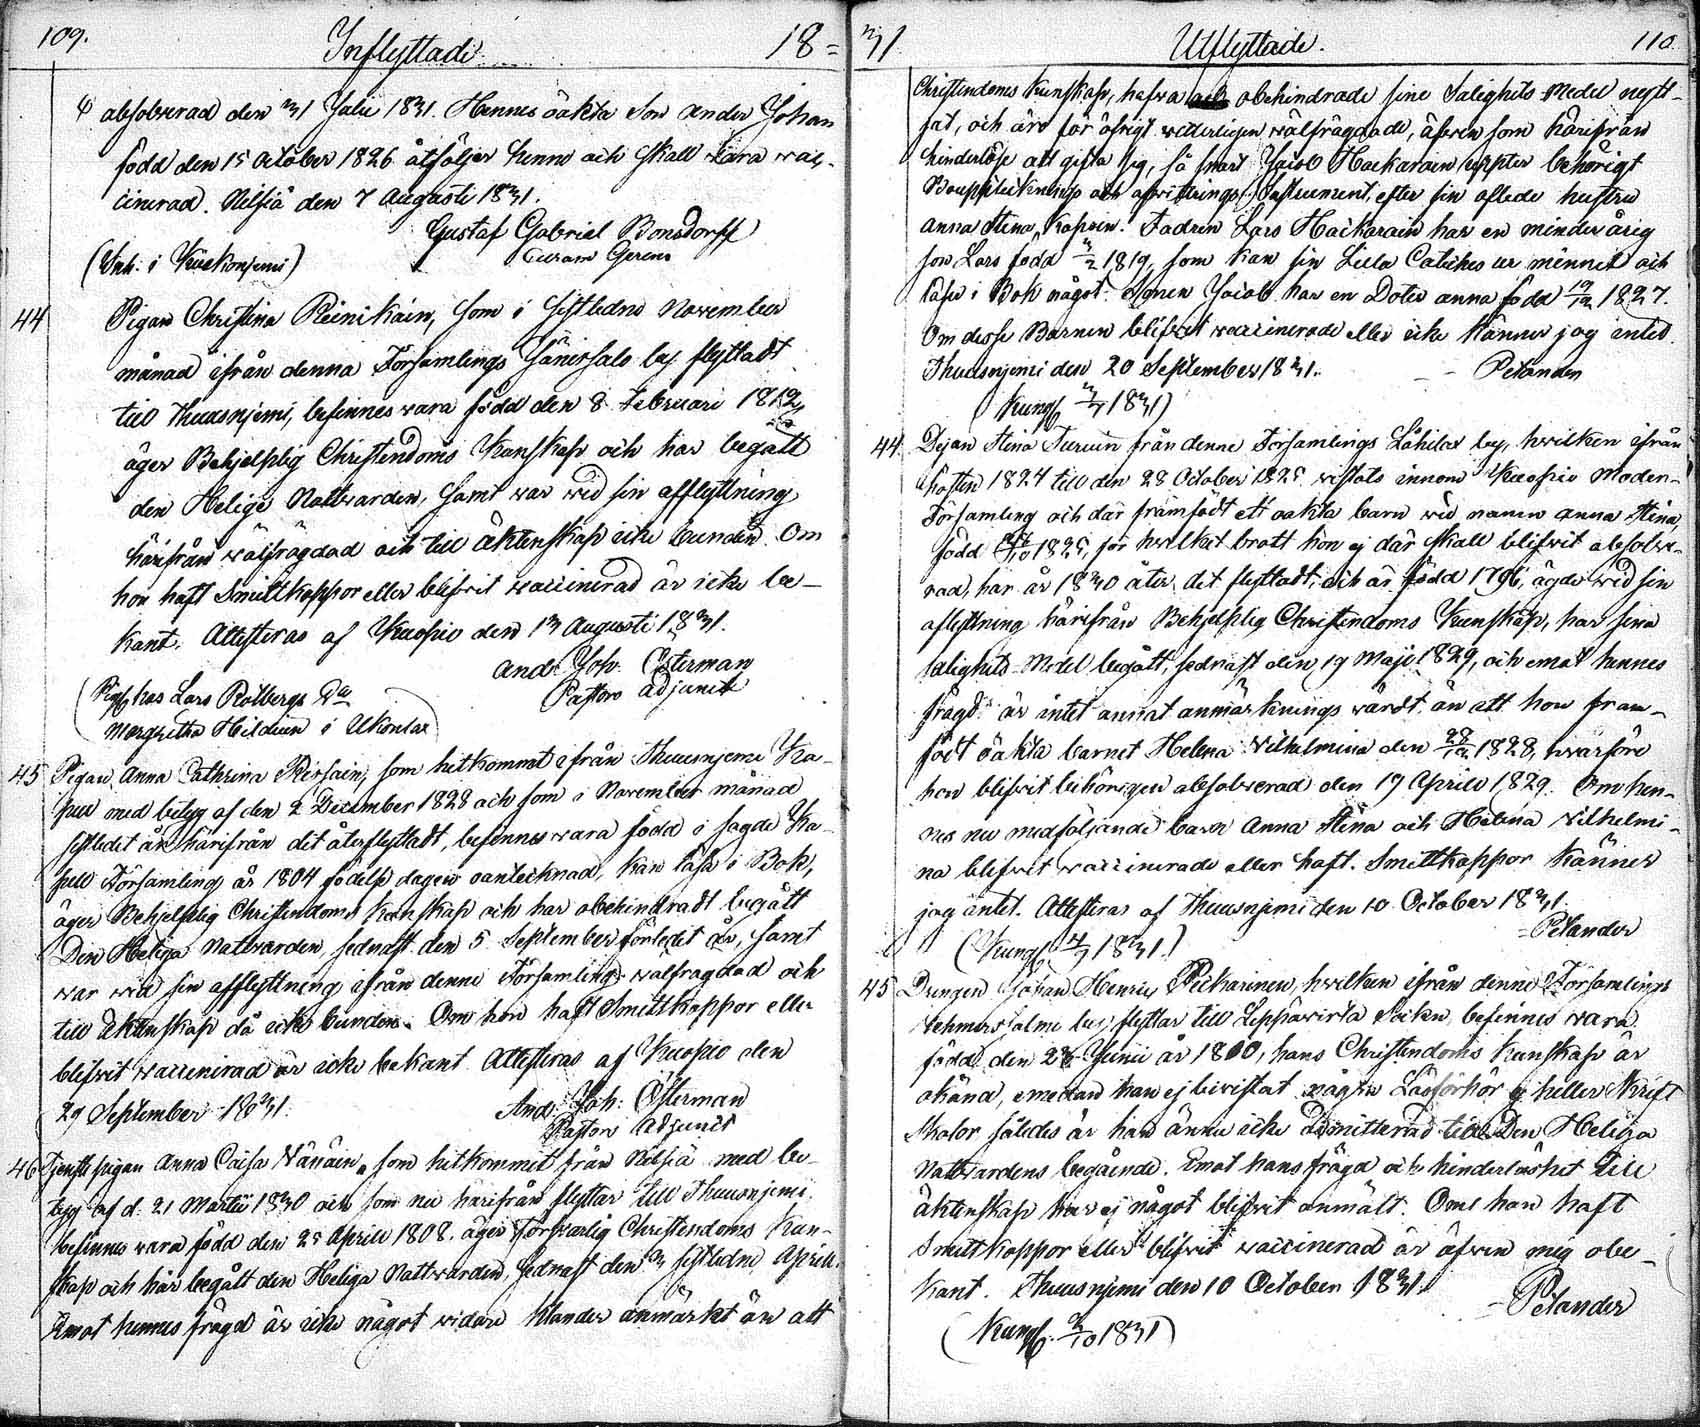 109. Inflyttade. 18=
absolverad den 31 Julii 1831. Hennes oäkta Son Anders Johan
född den 15 October 1826 åtföljer henne och skall vara vac-
cinerad. Nilsiä den 7 Augusti 1831.
Gustaf Gabriel Bonsdorff
Curam Gerens
(Inh: i Kuckonjemi)
44 Pigan Christina Reinikain, som i sistledne November
månad ifrån denna Församlings Jänissalo by flyttadt
till Thuusnjemi, befinnes vara född den 8 Februari 1812,
äger Behjelplig Christendoms Kunskap och har begått
den Helige Nattvarden, samt var vid sin afflyttning
härifrån välfrägdad och till äktenskap icke bunden. Om
hon haft Smittkoppor eller blifvit vaccinerad är icke be-
kant. Attesteras af Kuopio den 13 Augusti 1831.
And: Joh: Österman
Pastors Adjunct
(Pig hos Lars Rötbergs
Margretha Hilduen i Ukonlax)
45 Pigan Anna Cathrina Räsäin, som hitkommet ifrån Thuusnjemi Ka-
pell med betyg af den 2 December 1828 och som i November månad
sistledet år härifrån dit återflyttadt, befinnes vara född i sagde Ka-
pell Församling år 1804 födelse dagen oantecknad, kan läsa i Bok,
äger Behjelplig Christendoms Kunskap och har obehindradt begått
Den Heliga Nattvarden, sednast den 5 September förledet år, samt
var vid sin afflyttning ifrån denne Församling välfrägdad och
till äktenskap då icke bunden. Om hon haft Smittkoppor eller
blifvit vaccinerad är icke bekant. Attesteras af Kuopio den
29 September 1831.
And: Joh: Österman
Pastors Adjunct
46 Tjenstepigan Anna Caisa Wänäin, som hitkommit från Nilsiä med be-
tyg af d. 21 Martii 1830 och som nu härifrån flyttar till Thuusnjemi,
befinnes vara född den 25 Aprill 1808. äger Försvarlig Christendoms Kun-
skap och har begått den Heliga Nattvarden, sednast den 3 sistledne Aprill.
Emot hennes frägd är icke något vidare klander anmärkt än att
31 Utflyttade. 110.
Christendoms Kunskap, hafva obehindrade sine Salighets Medel nytt-
jat, och äro för öfrigt vitterligen välfrägdade, äfven som härifrån
hinderlöse att gifta sig, så snart Jacob Hackarain uppter behörigt
Boupptecknings och afvittrings Instrument, efter sin aflidne hustru
Anna Stina Kaposin. Fadren Lars Hackarain har en minderårig
son Lars född 3/2 1819, som kan sin Lilla Catiches ur minnet och
läser i Bok något. Sonen Jacob har en Doter Anna född 19/12 1827.
Om desse Barnen blifvit vaccinerade eller icke känner jag intet.
Thuusnjemi den 20 September 1831. Petander
(Kungj. 1831)
44. Pigan Stina Turuin från denne Församlings Låhilax by, hvilken ifrån
hösten 1824 till den 28 October 1825 vistats innom Kuopio Moder-
Församling och där framfödt ett oäkta barn vid namn Anna Stina,
född 1825, för hvilket brott hon ej där skall blifvit absolve-
rad, har år 1830 åter dit flyttadt, och är född 1796, ägde vid sin
aflyttning härifrån Behjelplig Christendoms Kunskap, har sina
Salighets Medel begått, sednast den 19 Maji 1829, och emot hennes
frägd är intet annat anmärknings värdt än att hon fram-
födt oäkta barnet Helena Vilhelmina den 28/12 1828, hvarföre
hon blifvit behörigen absolverad den 19 Aprill 1829. Om hen-
nes nu medföljande barn Anna Stina och Helena Vilhelmi-
na blifvit vaccinerade eller haft Smittkoppor känner
jag intet. Attesteras af Thuusnjemi den 10 October 1831.
Petander
(Kungj. 1831.)
45 Drengen Johan Henric Pickarinen, hvilken ifrån denne Församlings
Vehmersalmi by flyttar till Leppävirta Socken, befinnes vara
född den 26 Junii år 1800, hans Christendoms Kunskap är
okänd, emedan han ej bevistat någre Läsförhör ej heller Skrift
Skolor, således är han ännu icke admitterad till Den Heliga
Nattvardens begående. Emot hans frägd och hinderlöshet till
äktenskap har ej något blifvit anmält. Om han haft
Smittkoppor eller blifvit vaccinerad är äfven mig obe-
kant. Thuusnjemi den 10 October 1831.
Petander
(Kungj. 1831)